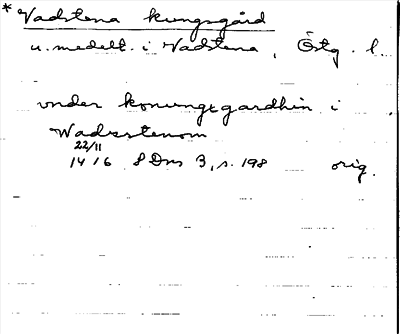 * Vadstena kungsgård
u. medelt. i Vadstena, Östg. l.
vnder konungxgardhin i
Wadzstenom
22/11
1416 SDns 3, s. 198 orig.